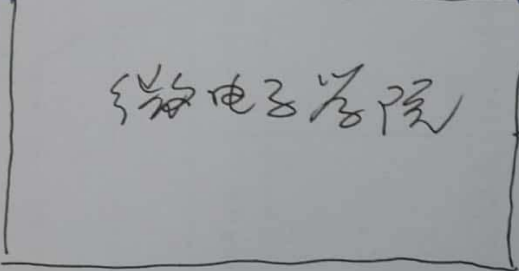 微电子学院